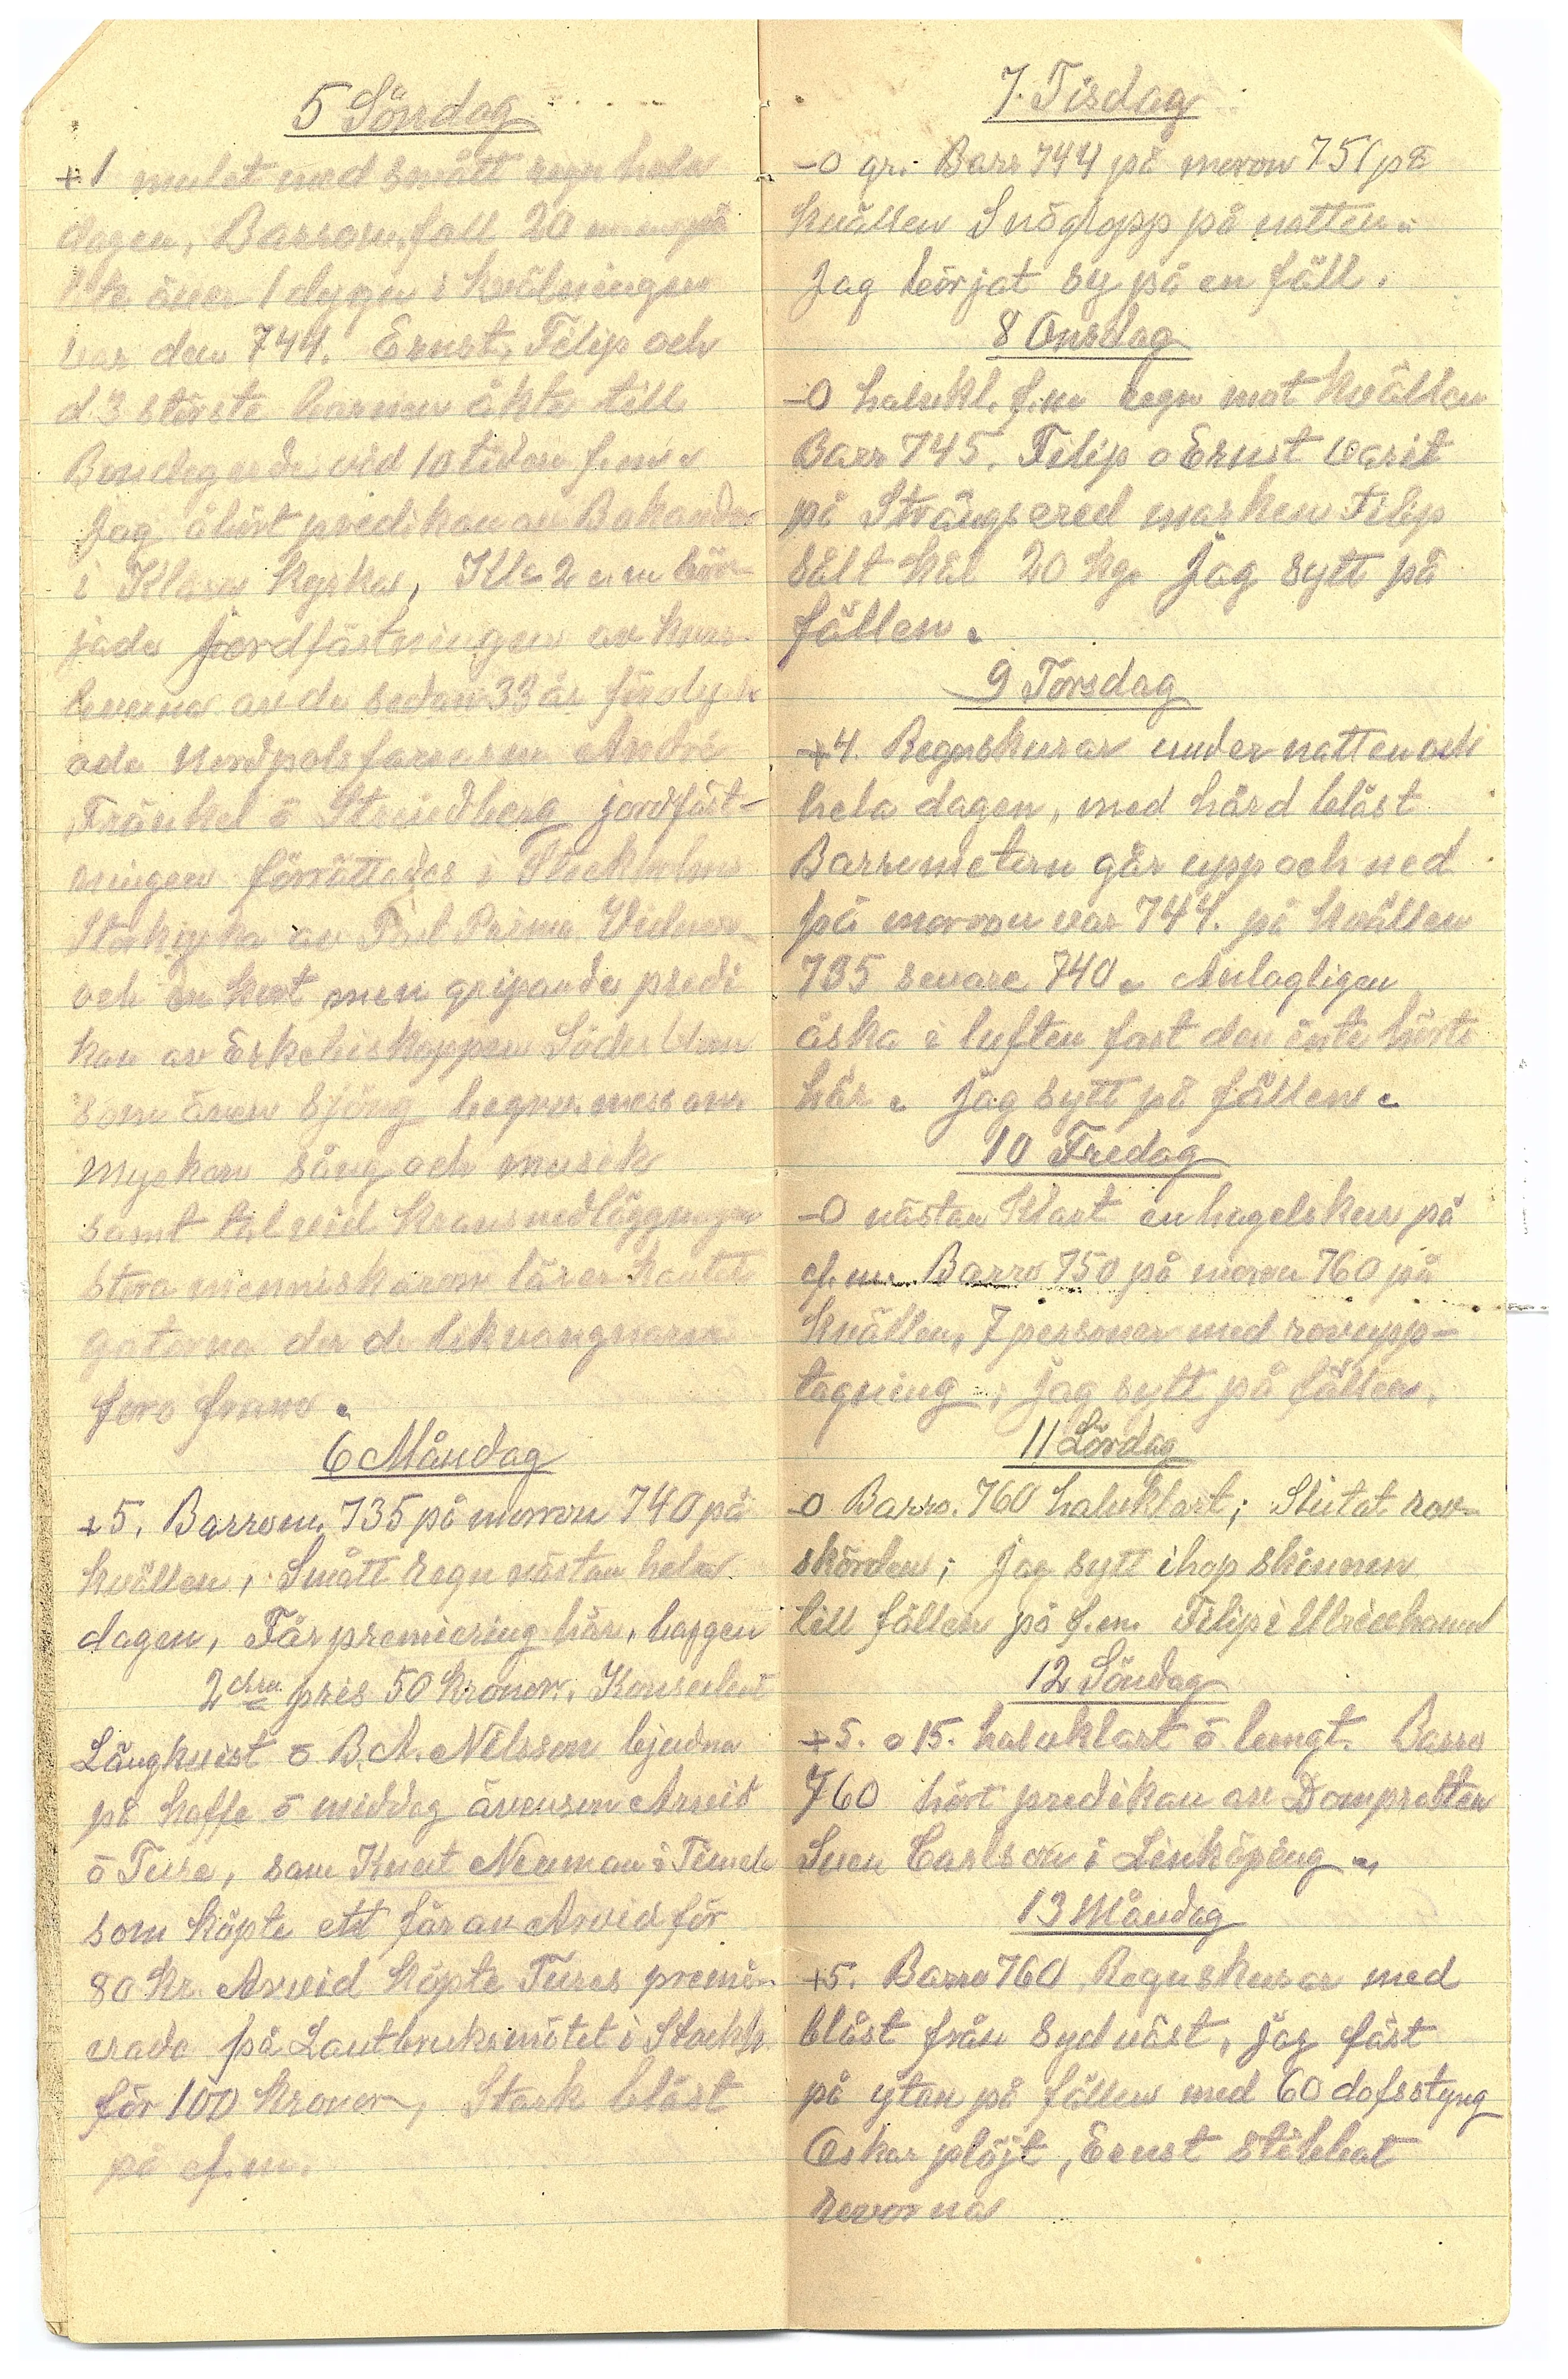 5 Söndag
+1 mulet med smått regn hela
dagen, Barrom, fall 20 mm på
lite över 1 dygn i kvälningen
var den 744. Ernst, Filip och
d 3 större barnen åkte till
Bondegärde vid 10 tiden f.m.
Jag åhört predikan av Bokander
i Klara kyrka, Kl 2 e.m bör-
jade Jordfästningen av kvar-
levorna av de sedan 33 år förolyck
ade Nordpolsfararna Andre
Fränkel o Strindberg jordfäst-
ningen förrättades i Stockholms
Storkyrka av Past Prima
och en kort men gripande predi
kan av Erkebiskoppen Söderblom
som även sjöng begr. messan
Mycken sång och musik
samt tal vid kransnedläggningen
Stora menniskarow lärer kantit
gatorna der de likvangnarna
foro fram.
6 Måndag
+5. Barrom. 735 på morron 740 på
kvällen, Smått regn nästan hela
dagen, Får premiering här, baggen
2dra pris 50 kronor. Konsulent
Långkvist o B.A. Nilsson bjudna
på kaffe o middag ävensom Arvid
o Ture, sam Knut Neuman i
som köpte ett får av Arvid för
80 kr. Arvid köpte Tures premi-
erade på Lantbruksmötet i Stockh.
för 100 kronor, Stark blåst
på ef.m.
7. Tisdag
-0 gr. Barr 744 på morron 751 på
kvällen Snöglopp på natten.
Jag börjat sy på en fäll.
8 Onsdag
-0 halvkl. f.m regn mot kvällen
Barr 745. Filip o Ernst varit
på Strängsered marken Filip
sålt kål 20 kg. Jag sytt på
fällen.
9 Torsdag
+4. Regnskurar under natten och
hela dagen, med hård blåst
Barrometern går upp och ned
på morron var 744. på kvällen
735 senare 740. Antagligen
åska i luften fast den inte hörts
här. Jag sytt på fällen.
10 Fredag
-0 nästan klart en hagelskur på
ef.m. Barro 750 på morron 760 på
kvällen, 7 personer med rovupp-
tagning; Jag sytt på fällen.
11 Lördag
-0 Barro. 760 halvklart; Slutat rov-
skörden; Jag sytt ihop skinnen
till fällen på f.m. Filip i Ulricehamn
12 Söndag
+5. o 15. halvklart o lungt. Barro
760 hört predikan av Domprosten
Sven Carlson i Linköping.
13 Måndag
+5. Barro 760 Regnskurar med
blåst från sydväst, jag fäst
på ytan på fällen med 60 dofsstyng
Oskar plöjt, Ernst stökkat
rovorna